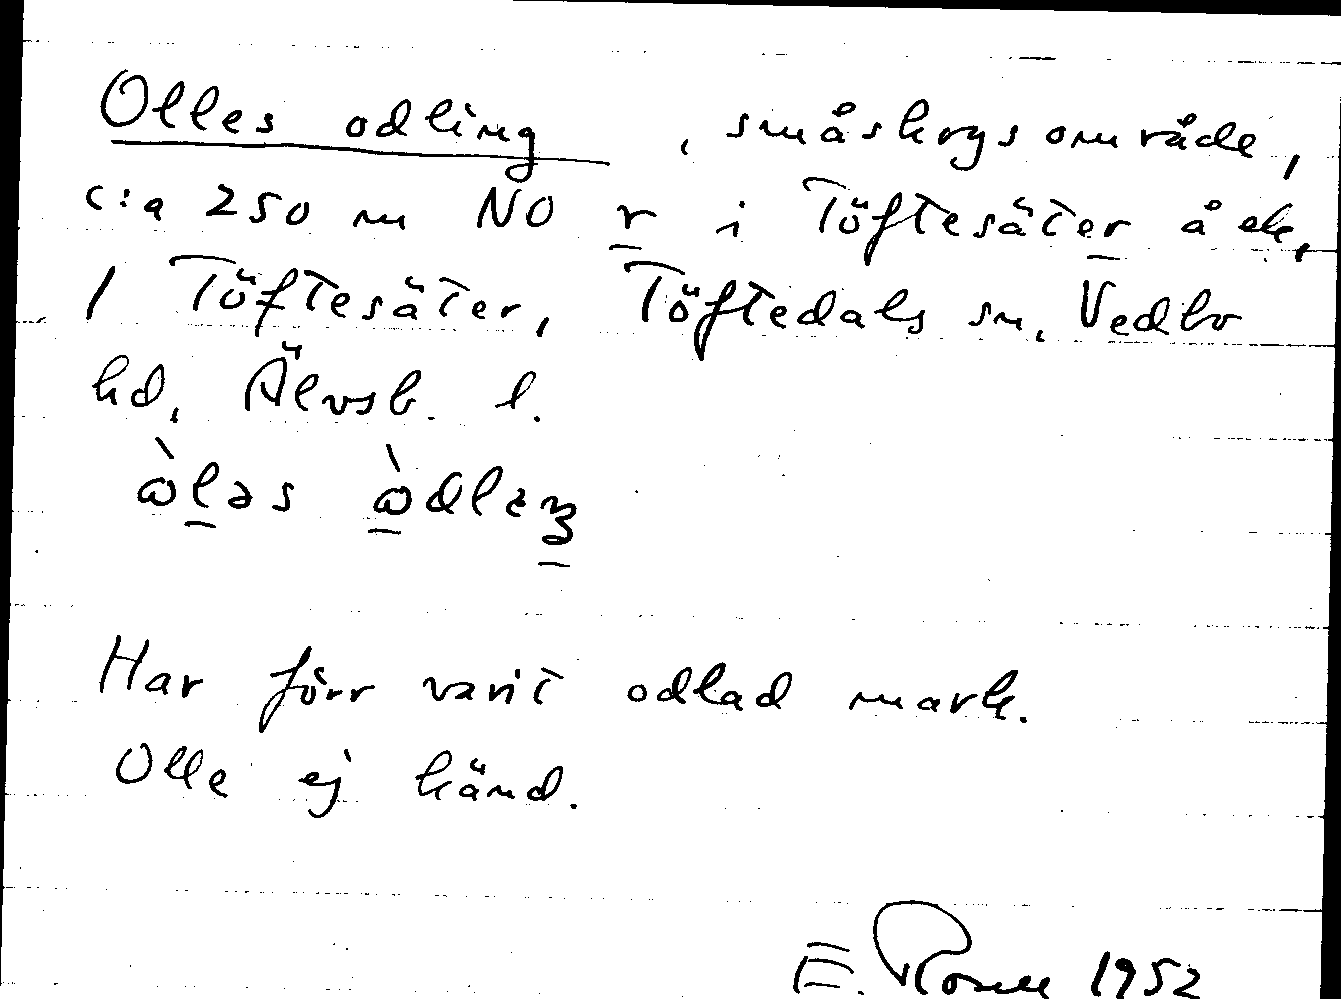 Olles odling, småskogsområde,
c:a 250 m NO r i Töftesäter å ek.
1 Töftesäter, Töftedals sn. Vedbo
hd, Älvsb. l.
Har förr varit odlad mark.
Olle ej känd.
E. 1952